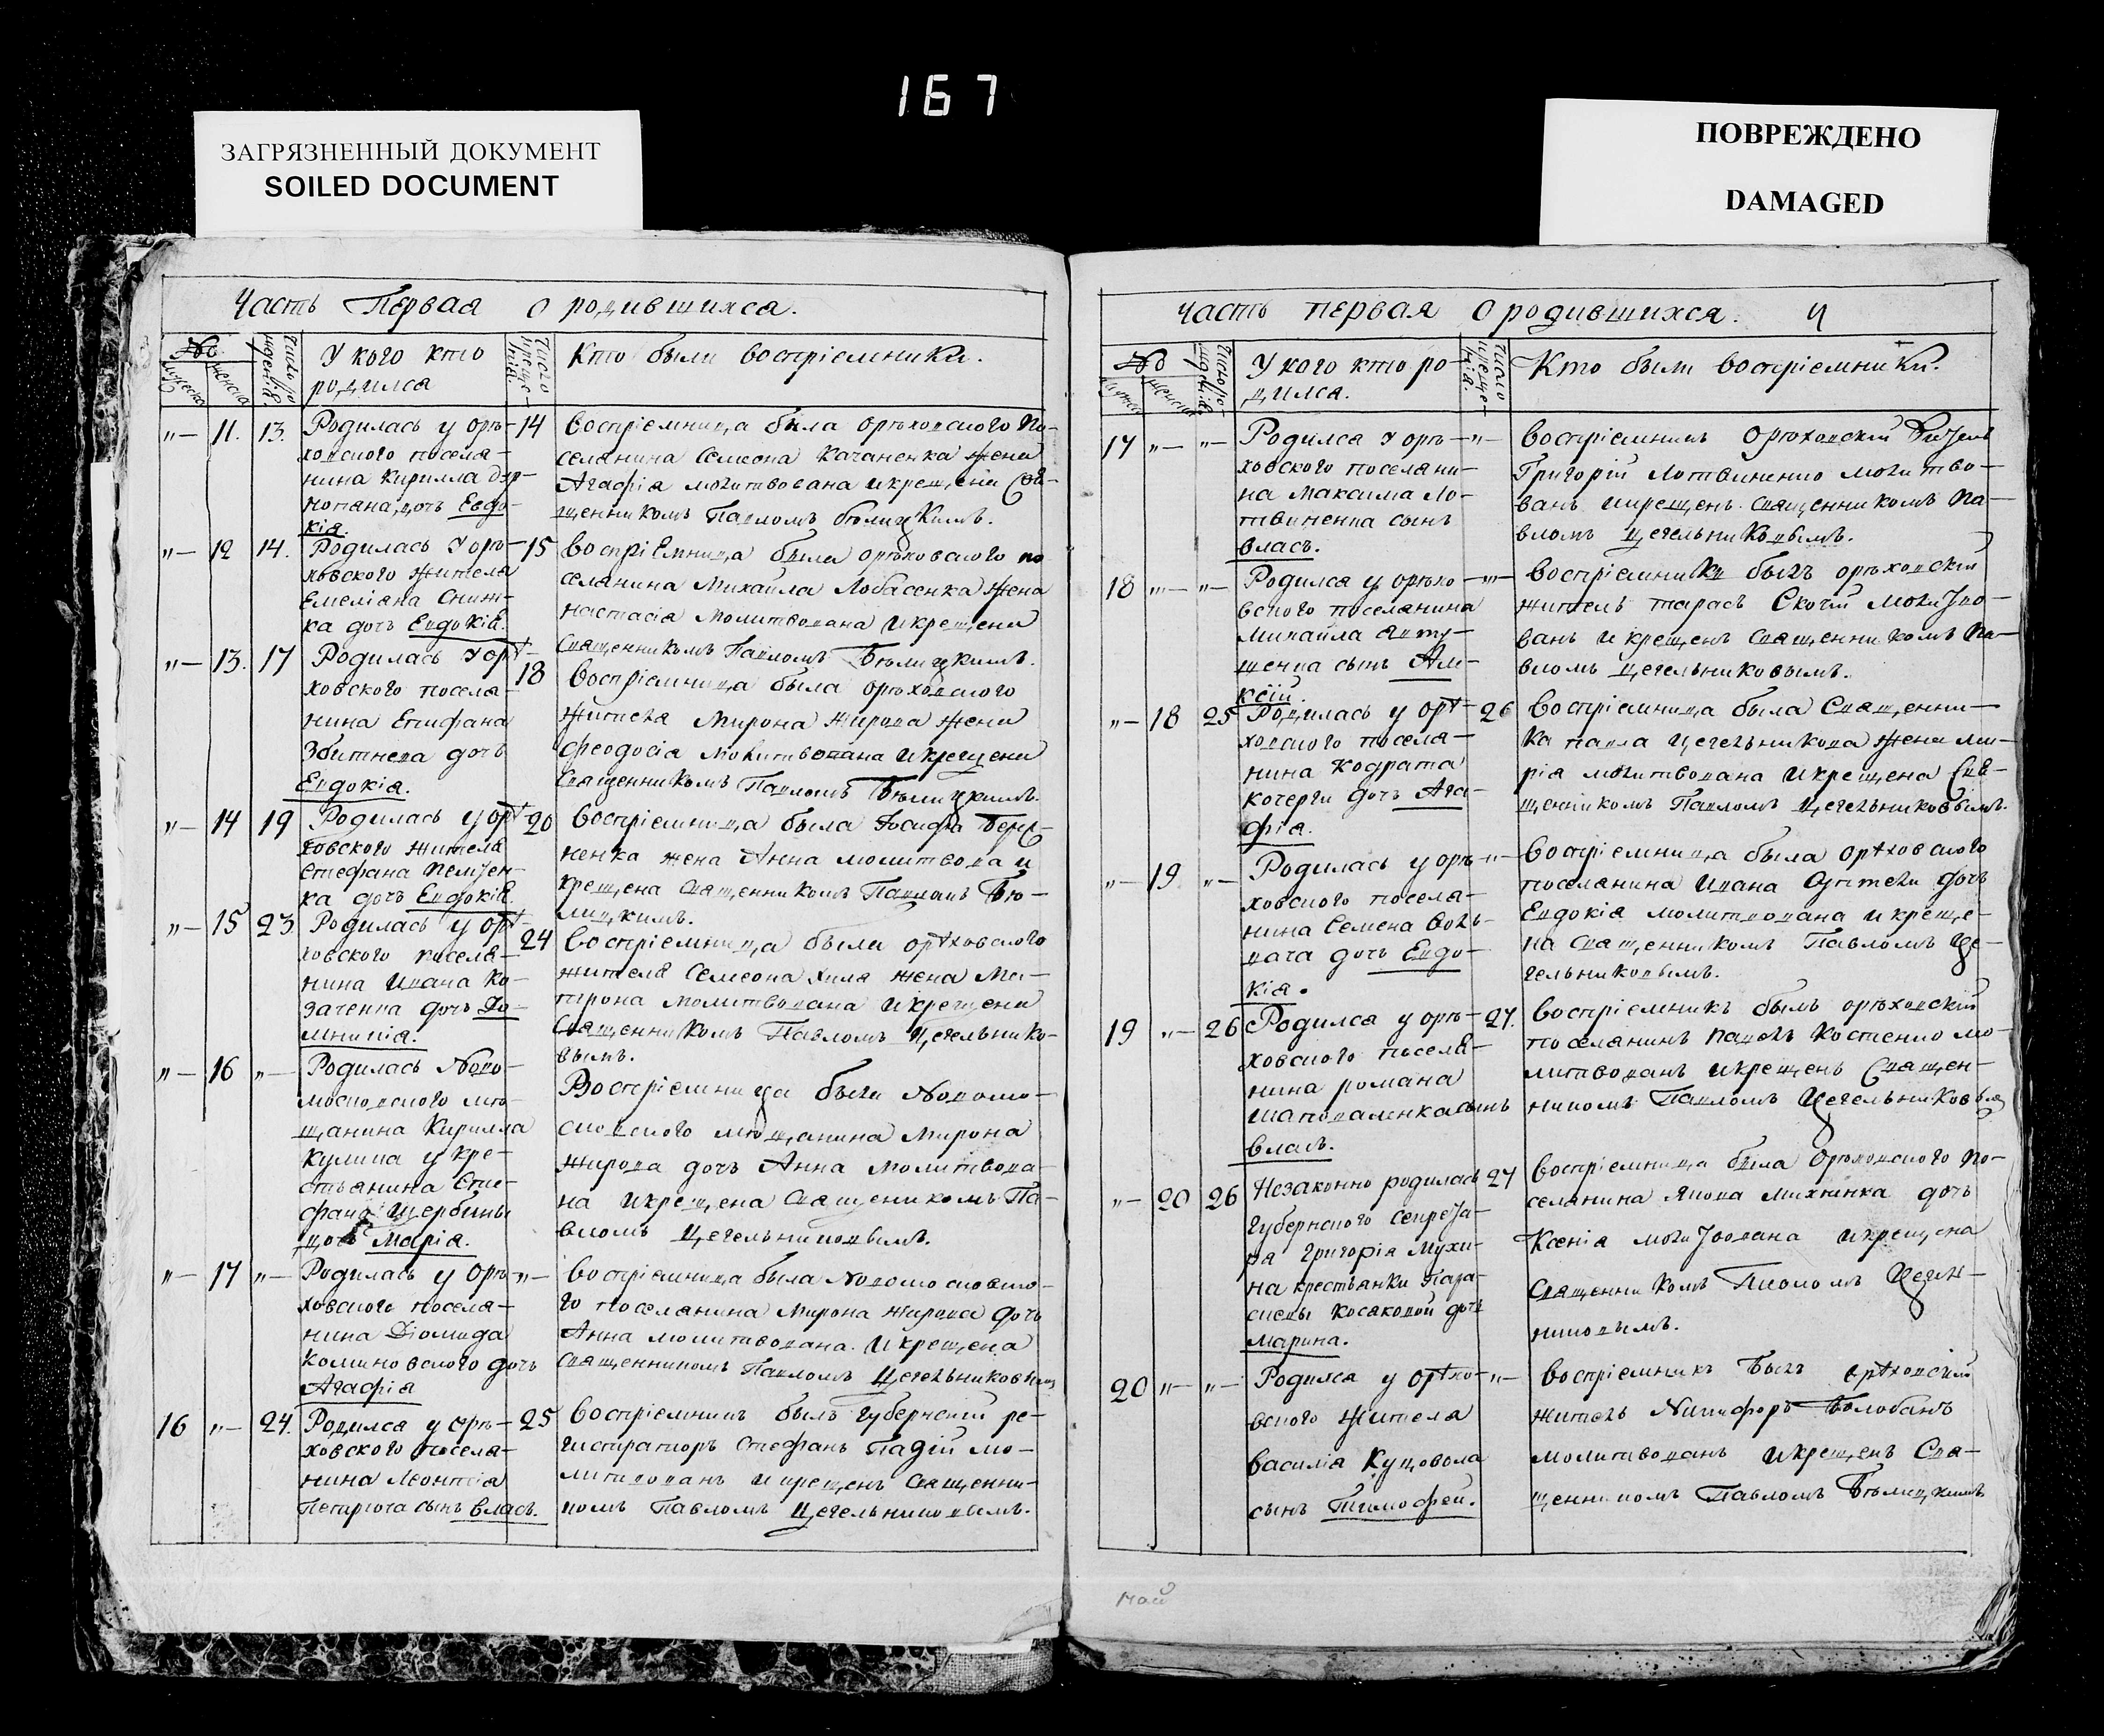 167
ЗАГРЯЗНЕННЫЙ ДОКУМЕНТ
SOILED DOCUMENT
ПОВРЕЖДЕНО
DAMAGED
Часть Первая о родившихся.
№
У кого кто родился
Кто были воспріемники.
"— 11. 13. Родилась у орѣ—
ховского поселя—
нина Кирилла
дочь Евдо—
кія.
14 Воспріемница была орѣховского по—
селянина Семеона Качаненка жена
Агафія молитвована и крещена Свя—
щенникомъ Павломъ Бѣлицкимъ.
"— 12 14. Родилась у орѣ—
ховского жителя
Емеліана Сниж—
ка дочь Евдокія.
15 Воспріемница была орѣховского по
селянина Михаила Лобасенка жена
настасія молитвована и крещена
Священникомъ Павломъ Бѣлицкимъ.
"— 13. 17 Родилась у орѣ—
ховского поселя—
нина Епифана
Збитнева дочь
Евдокія.
18 Воспріемница была орѣховского
жителя Мирона Жирова жена
Феодосія молитвована и крещена
Священникомъ Павломъ Бѣлицкимъ.
"— 14 19 Родилась у орѣ—
ховского жителя
Стефана
ка дочь Евдокія.
20 Воспріемница была Іосифа
ненка жена Анна молитвова и
крещена священникомъ Павломъ Бѣ—
лицкимъ.
"— 15 23 Родилась у орѣ—
ховского поселя—
нина Ивана Ко—
заченка дочь До—
мникія.
24 Воспріемница была орѣховского
жителя Семеона Хиля жена Ма—
трона молитвована и крещена
Священникомъ Павломъ Цегельнико—
вымъ.
"— 16 "— Родилась Ново—
московского мѣ—
щанина Кирилла
Кулина у кре—
стьянина Сте—
фана Щербины
дочь Марія.
Воспріемница была Новомо—
сковского мѣщанина Мирона
Жирова дочь Анна молитвова—
на и крещена Священикомъ Па—
вломъ Цегельниковымъ.
"— 17 "— Родилась у Орѣ—
ховского поселя—
нина Діомида
Коминовского дочь
Агафія
"— Воспріемница была Новомосковско—
го поселянина Мирона Жирова дочь
Анна молитвована. и крещена
Священникомъ Павломъ Цегельниковымъ
16 "— 24. Родился у орѣ—
ховского поселя—
нина Леонтія
Петарюга сынъ Власъ.
25 Воспріемникъ былъ губернскій ре—
гистраторъ Стефанъ Падій мо—
литвованъ и крещенъ Священни—
комъ Павломъ Цегельниковымъ.
Часть первая о родившихся. 4
№
У кого кто ро—
дился.
Кто были воспріемники.
17 "— "— Родился у орѣ—
ховского поселяни—
на Максима Ло—
твиненка сынъ
власъ.
"— Воспріемникъ Орѣховскій житель
Григорій Лотвиненко молитво—
ванъ и крещенъ. священникомъ Па—
вломъ Цегельниковымъ.
18 "— "— Родился у орѣхо—
вского поселянина
Михаила
щенка сынъ Але—
ксій.
"— Воспріемника былъ орѣховскій
житель тарасъ Скочій молитво—
ванъ и крещенъ священникомъ Па—
вломъ Цегельниковымъ.
"— 18 25 Родилась у орѣ—
ховского поселя—
нина Кодрата
Кочерги дочь Ага—
фія.
26 Воспріемница была Священни—
ка павла Цегельникова жена ма—
рія молитвована и крещена Свя—
щенникомъ Павломъ Цегельниковымъ.
"— 19 "— Родилась у орѣ—
ховского поселя—
нина Семена Воль—
вача дочь Евдо—
кія.
"— Воспріемница была орѣховского
поселянина Ивана дочь
Евдокія молитвована и креще—
на священникомъ Павломъ Це—
гельниковымъ.
19 "— 26 Родился у орѣ—
ховского поселя—
нина романа
Шаповаленка сынъ
власъ.
27. Воспріемникъ былъ орѣховскій
поселянинъ Павелъ Костенко мо—
литвованъ и крещенъ Священ—
никомъ Павломъ Цегельниковым
"— 20 26 Незаконно родилась
Губернского секрета—
ря Григорія Мухи—
на крестьянки Пара—
скевы Косаковой дочь
Марина.
27 Воспріемница была Орѣховского по—
селянина Якова Михненка дочь
Ксенія молитвована и крещена
Священникомъ Павломъ Цегель—
никовымъ.
20 "— "— Родился у орѣхо—
вского жителя
Василія Куцовола
сынъ Тимофей.
"— Воспріемникъ былъ орѣховскій
житель Никифоръ Болобанъ
молитвованъ и крещенъ Свя—
щенникомъ Павломъ Бѣлицкимъ
май